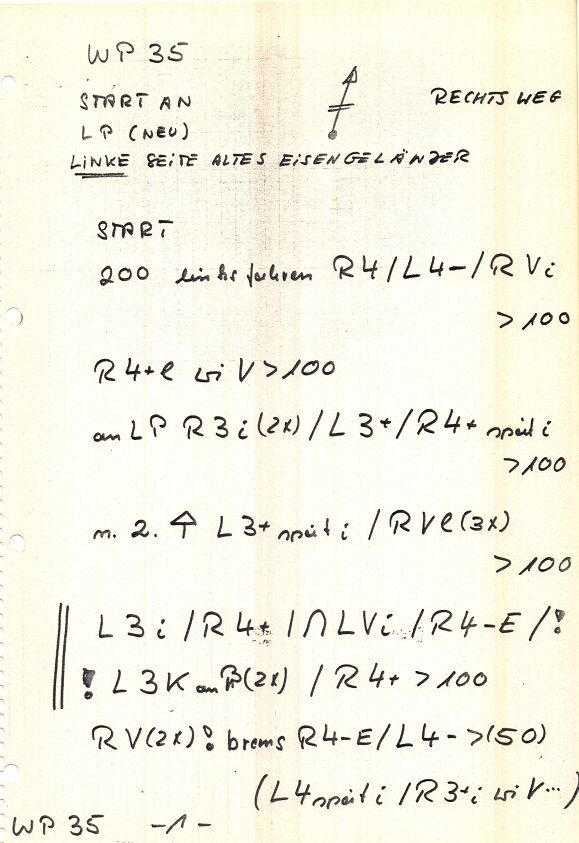 WP 35
START AN
RECHTS WEG
LP (NEU)
LINKE SEITE ALTES EISENGELÄNDER
START
200 links fahren R4/L4-/R Vi
>100
R4+l wi V>100
an LP R3i(2x)/L3+/R4+ spät i
>100
n. 2. L3+ spät i / RVl(3x)
>100
L3i/R4+/∩LVi/R4-E/!
! L3K an (2x) / R4+ >100
RV(2x)! brems R4-E/L4->(50)
(L4 spät i /R3+i wi V...)
WP 35 -1-